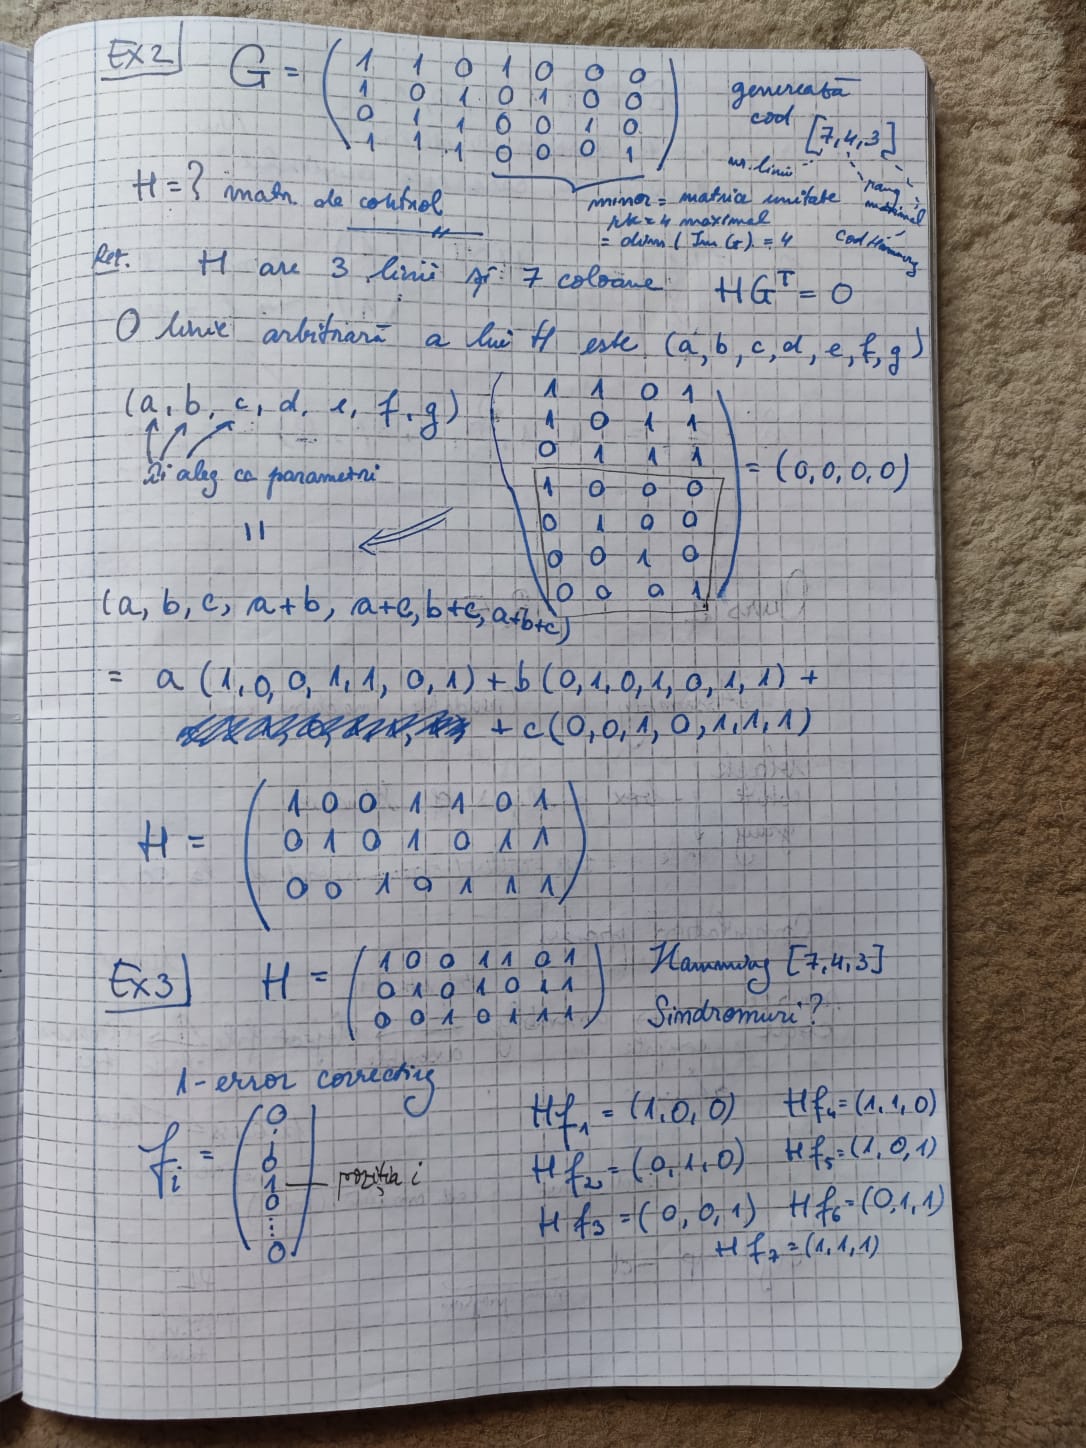 Ex2 G = ( 1 1 0 1 0 0 0
1 0 1 0 1 0 0
0 1 1 0 0 1 0
1 1 1 0 0 0 1 )
generează
cod [7,4,3]
nr. linii
rang maximal
cod Hamming
H = ? matr. de control
minor = matrice unitate
rk = 4 maximal
= dim (Im G) = 4
Rez. H are 3 linii și 7 coloane HGᵀ = 0
O linie arbitrară a lui H este (a, b, c, d, e, f, g)
(a, b, c, d, e, f, g) ( 1 1 0 1
1 0 1 1
0 1 1 1
1 0 0 0
0 1 0 0
0 0 1 0
0 0 0 1 ) = (0,0,0,0)
îi aleg ca parametri
=
(a, b, c, a+b, a+c, b+c, a+b+c)
= a (1,0,0,1,1,0,1) + b (0,1,0,1,0,1,1) +
+ c (0,0,1,0,1,1,1)
H = ( 1 0 0 1 1 0 1
0 1 0 1 0 1 1
0 0 1 0 1 1 1 )
Ex3 H = ( 1 0 0 1 1 0 1
0 1 0 1 0 1 1
0 0 1 0 1 1 1 )
Hamming [7,4,3]
Sindromuri?
1-error correcting
fᵢ = ( 0
⋮
0
1 — poziția i
0
⋮
0 )
Hf₁ = (1,0,0) Hf₄ = (1,1,0)
Hf₂ = (0,1,0) Hf₅ = (1,0,1)
Hf₃ = (0,0,1) Hf₆ = (0,1,1)
Hf₇ = (1,1,1)